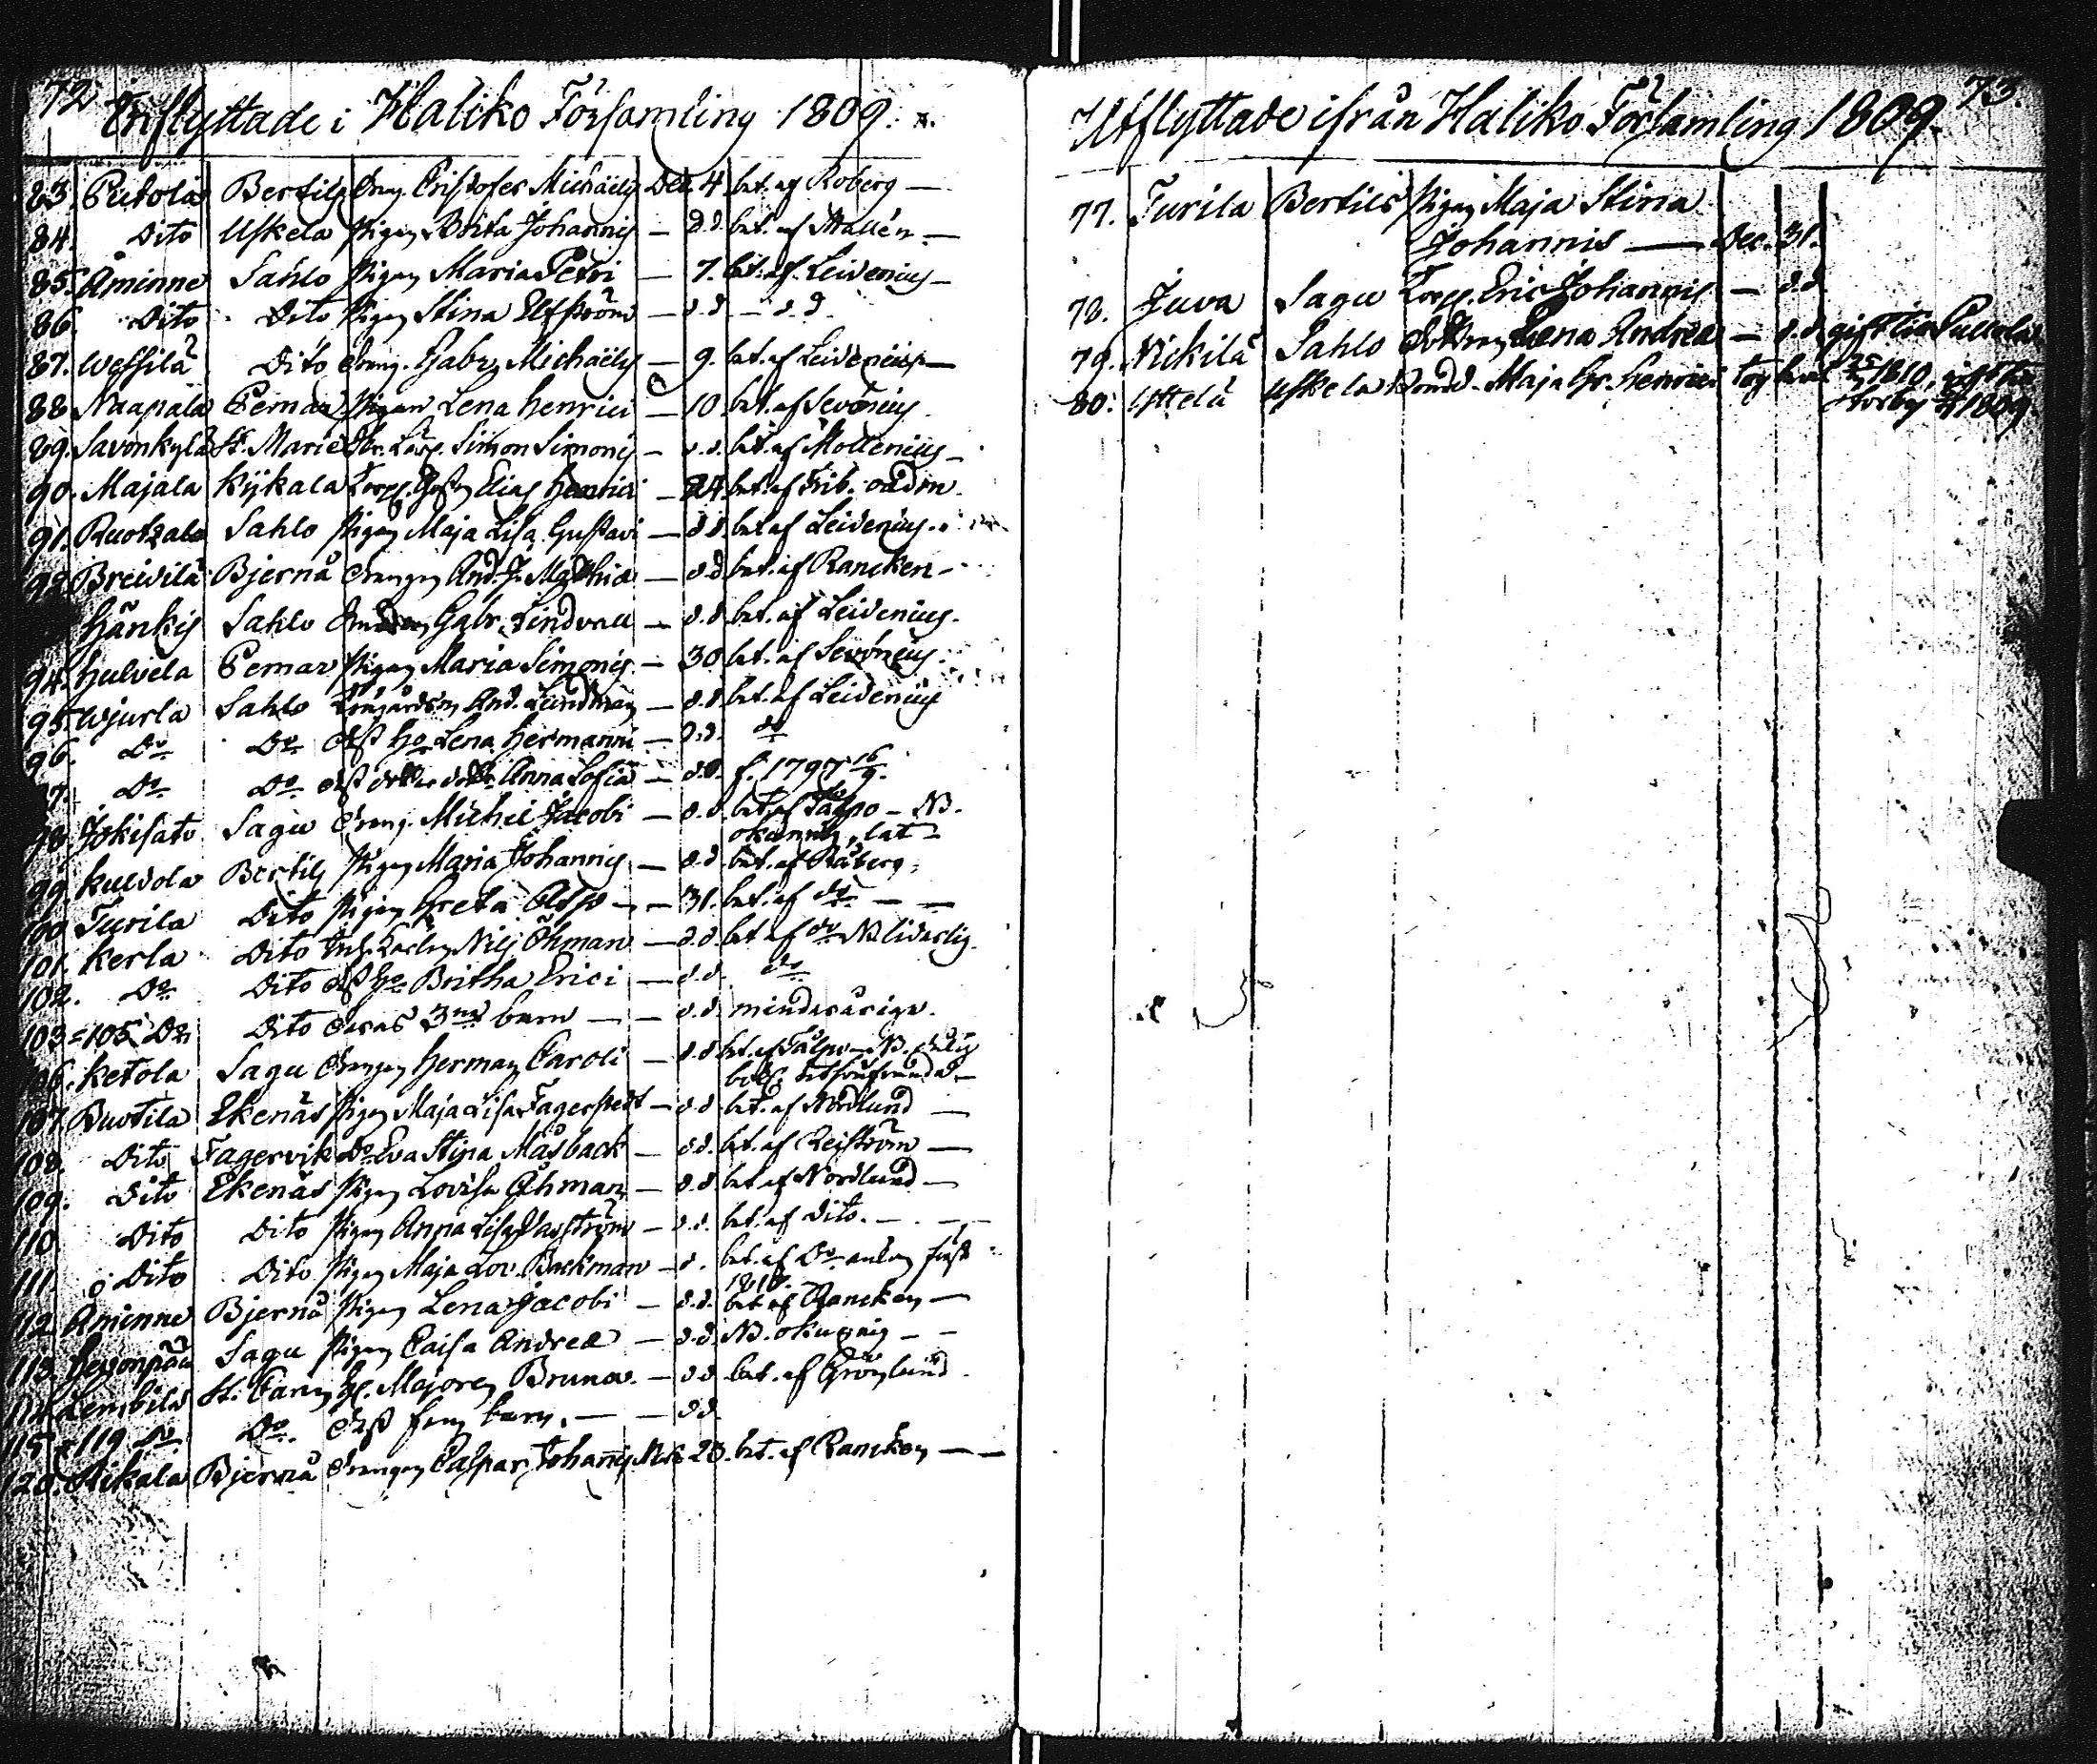 72
Inflyttade i Haliko Församling 1809.
83. Pietola Bertils Dreng. Cristofer Michaëlis Dec. 4 bet. af Roberg —
84. Dito Uskela Pigan Brita Johannis — d.d. bet. af Mallén —
85. Åminne Sahlo Pigan Maria Petri — 7. bet. af Leidenius —
86. Dito Dito Pigan Stina Elfström — d.d — d.d.
87. Wessilä Dito Dreng. Gabr. Michaëlis — 9. bet. af Leidenius —
88 Naapala Pemar Pigan Lena Henrici — 10. bet. af Sevonius
89. Savonkylä St. Marie Simon Simonis — d.d. bet. af Mollenius —
90. Majala Kijkala Torp. Elias Henrici — 24. bet. af
91. Ruotzala Sahlo Pigan Maja Lisa Gustavi — d.d. bet af Leidenius.
92 Breidilä Bjernå Drengen And. J. Mathiæ — d.d bet. af Rancken —
Hänkis Sahlo Gabr. Lindvall — d.d bet. af Leidenius.
94. Hulvela Pemar Pigan Maria Simonis — 30 bet. af Sevonius.
95. Wjurla Sahlo And. Lindman — d.d bet. af Leidenius
96. Do Do Dess Ho Lena Hermanni — d.d. do
7. Do Do Dess Anna Sofia — d.d. f. 1797 16/9.
98. Jokisato Sagu Dreng. Michel Jacobi — d.d. bet. af Tälpo — NB.
okunnig, lat —
99. Kuldola Bertils Pigan Maria Johannis — d.d bet. af Råberg.
100. Turila Dito Pigan Greta — 31. bet. af do — —
101. Kerla Dito Nils Öhman — d.d. bet af do NB liderlig.
102. Do Dito Dess Ho Britha Erici — d.d. do
103 = 105 Do Dito deras 3ne barn — — d.d. minderåriga.
106. Ketola Sagu Drengen Herman Caroli — d.d bet. af Tälpo — NB.
107 Buotila Ekenäs Pigan Maja Lisa Fagerstedt — d.d bet. af Nordlund —
108. Dito Fagervik Do Eva Stina Måsback — d.d. bet. af Reiström —
109. Dito Ekenäs Pigan Lovisa Öhman — d.d bet af Nordlund —
110 Dito Dito Pigan Anna Lisa — d.d. bet. af dito. —
111. Dito Dito Pigan Maja Lov. Backman — d. bet. af Do först
1810.
112 Åminne Bjernå Pigan Lena Jacobi — d.d. bet af Rancken —
113. Hevonpää Sagu Pigan Caisa Andreæ — d.d. NB. okunnig — —
114 Lembilä St. Carin H. Majoren Bruno. — d.d bet. af Grönlund
115 = 119 Do Do Dess fem barn. — — d.d.
120. Hikala Bjernå Drengen Caspar Johannis 23. bet. af Rancken — —
73.
Utflyttade ifrån Haliko Församling 1809.
77. Turila Bertils Pigan Maja Stina
Johannis — Dec. 31.
78. Juva Sagu Torp. Eric Johannis — d.d
79. Nickilä Sahlo Lena Andreæ — d.d gift till Pullola
80. Yttelä Uskela Bondd. Maja Gr. Henrici tog 1810, gift till
Norby 1809.